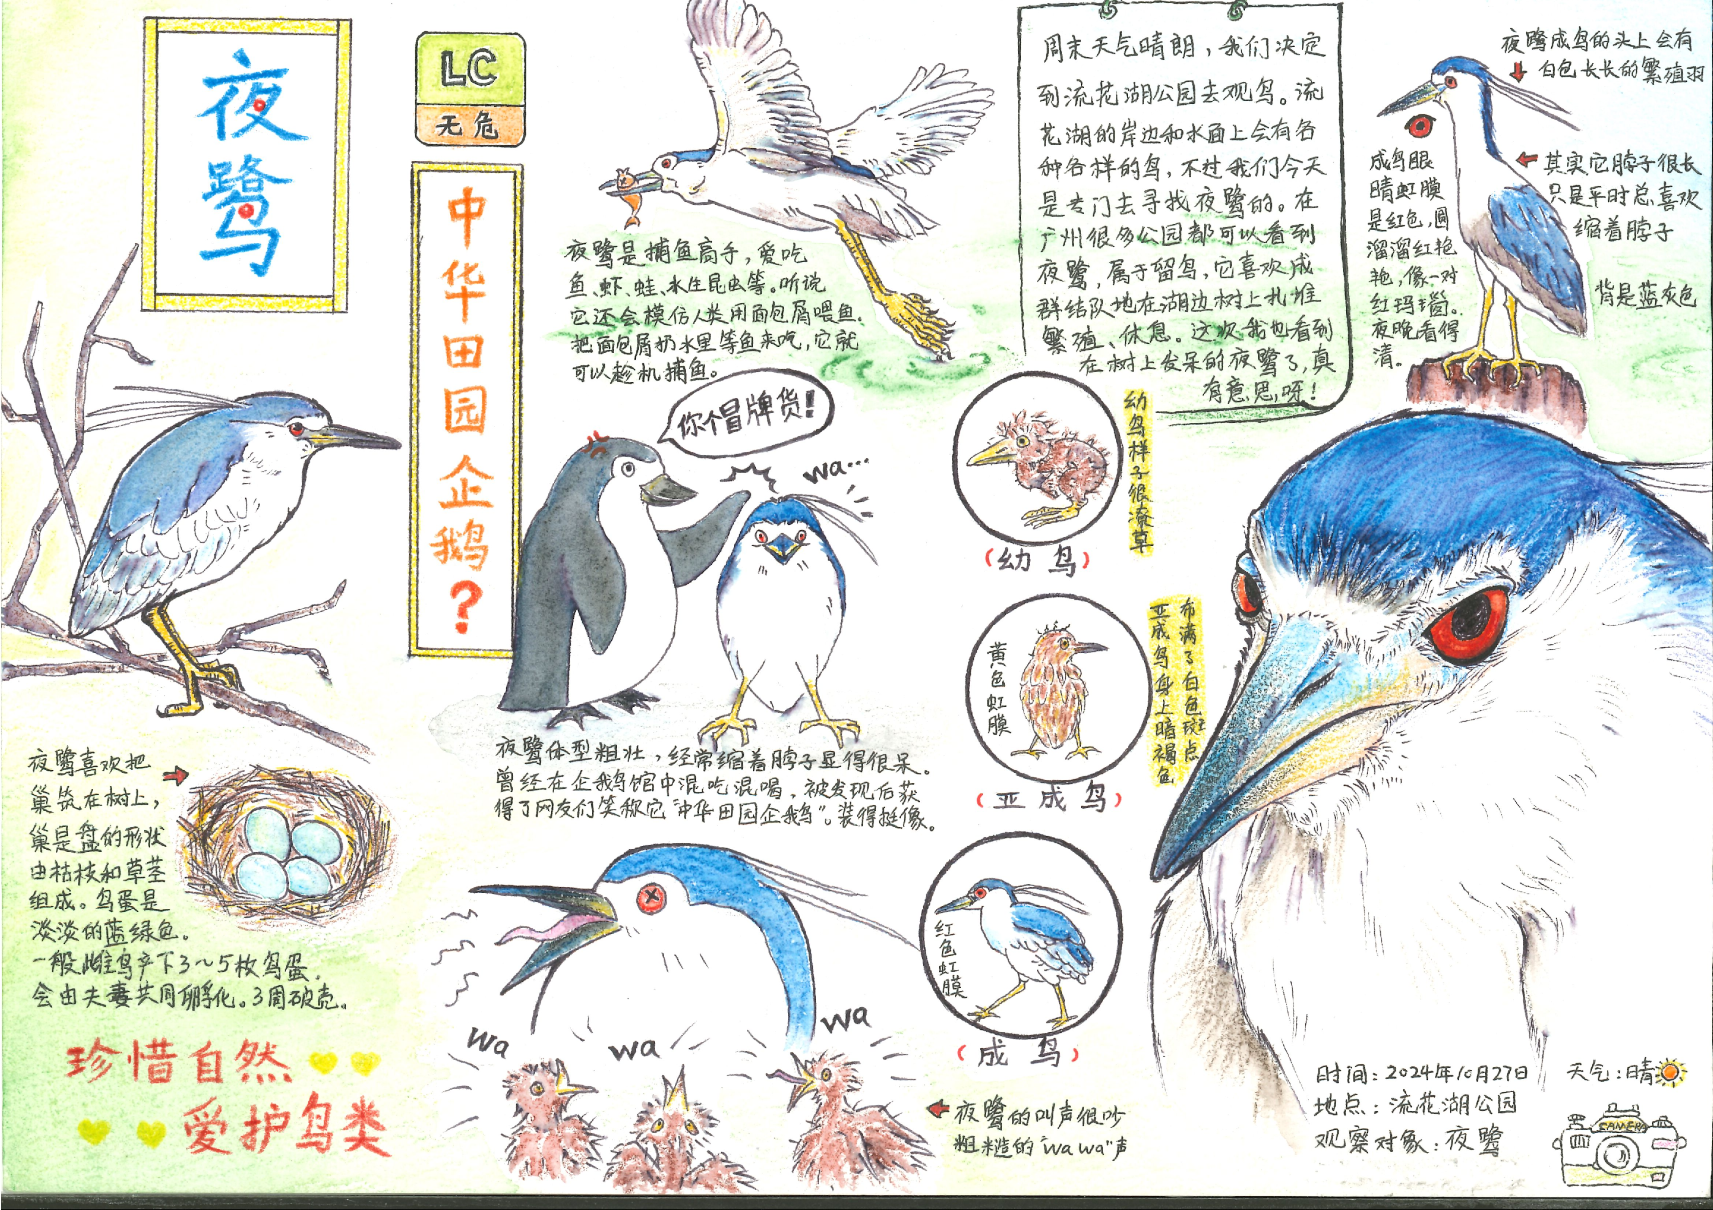 夜鹭
LC
无危
中华田园企鹅?
夜鹭是捕鱼高手，爱吃
鱼、虾、蛙、水生昆虫等。听说
它还会模仿人类用面包屑喂鱼.
把面包屑扔水里等鱼来吃,它就
可以趁机捕鱼。
周末天气晴朗，我们决定
到流花湖公园去观鸟。流
花湖的岸边和水面上会有各
种各样的鸟，不过我们今天
是专门去寻找夜鹭的。在
广州很多公园都可以看到
夜鹭，属于留鸟，它喜欢成
群结队地在湖边树上扎堆
繁殖、休息。这次我也看到
在树上发呆的夜鹭了,真
有意思呀!
夜鹭成鸟的头上会有
白色长长的繁殖羽
成鸟眼
睛虹膜
是红色,圆
溜溜红艳
艳,像一对
红玛瑙。
夜晚看得
清。
其实它脖子很长
只是平时总喜欢
缩着脖子
背是蓝灰色
你个冒牌货!
wa...
夜鹭体型粗壮，经常缩着脖子显得很呆。
曾经在企鹅馆中混吃混喝，被发现后获
得了网友们笑称它“中华田园企鹅”。装得挺像。
幼鸟样子很潦草
(幼鸟)
黄色虹膜
布满了白色斑点
亚成鸟身上暗褐色
(亚成鸟)
红色虹膜
(成鸟)
夜鹭喜欢把
巢筑在树上,
巢是盘的形状
由枯枝和草茎
组成。鸟蛋是
淡淡的蓝绿色。
一般雌鸟产下3~5枚鸟蛋.
会由夫妻共同孵化。3周破壳。
珍惜自然
爱护鸟类
wa
wa
wa
夜鹭的叫声很吵
粗糙的“wa wa”声
时间:2024年10月27日
天气:晴
地点:流花湖公园
观察对象:夜鹭
CAMERA